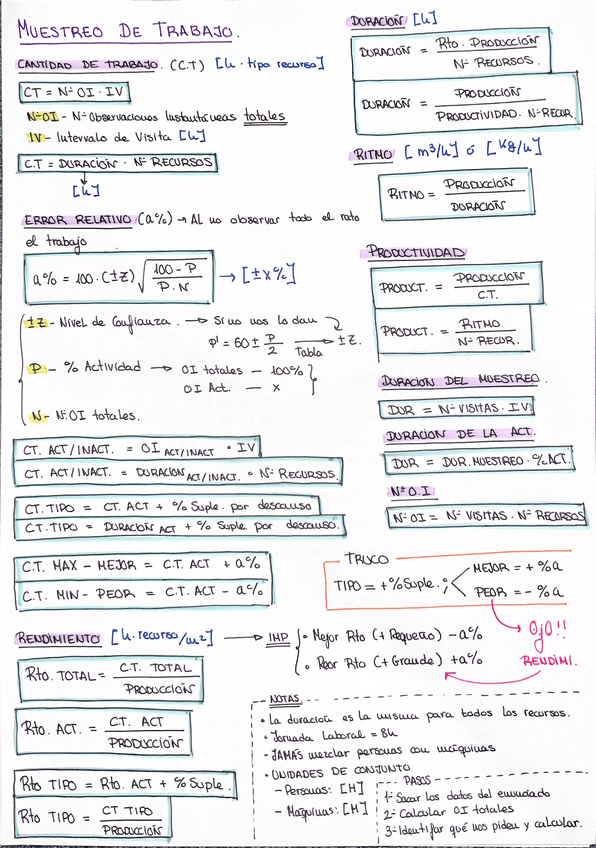 MUESTREO DE TRABAJO.
CANTIDAD DE TRABAJO. (C.T) [h · tipo recurso]
CT = Nº OI · IV
Nº OI - Nº Observaciones Instantáneas totales
IV - Intervalo de Visita [h]
C.T = DURACIÓN · Nº RECURSOS
[h]
ERROR RELATIVO (a%) → Al no observar todo el rato
el trabajo
a% = 100 · (±Z) √ 100 - P / P · N → [±x%]
±Z - Nivel de Confianza. → Si no nos lo dan
P' = 50 ± P/2 → Tabla ±Z.
P - % Actividad → OI totales - 100%
OI Act. - x
N - Nº OI totales.
CT. ACT/INACT. = OI ACT/INACT · IV
CT. ACT/INACT. = DURACIÓN ACT/INACT. · Nº RECURSOS.
CT. TIPO = CT. ACT + % Suple. por descanso
CT. TIPO = DURACIÓN ACT + % Suple. por descanso.
C.T. MAX - MEJOR = C.T. ACT + a%
C.T. MIN - PEOR = C.T. ACT - a%
RENDIMIENTO [h. recurso/m²] → IMP
• Mejor Rto (+ Pequeño) - a%
• Peor Rto (+ Grande) + a%
Rto. TOTAL = C.T. TOTAL / PRODUCCIÓN
Rto. ACT. = CT. ACT / PRODUCCIÓN
Rto TIPO = Rto. ACT + % Suple.
Rto TIPO = CT TIPO / PRODUCCIÓN
DURACIÓN [h]
DURACIÓN = Rto. PRODUCCIÓN / Nº RECURSOS.
DURACIÓN = PRODUCCIÓN / PRODUCTIVIDAD · Nº RECUR.
RITMO [m³/h] ó [kg/h]
RITMO = PRODUCCIÓN / DURACIÓN
PRODUCTIVIDAD
PRODUCT. = PRODUCCIÓN / C.T.
PRODUCT. = RITMO / Nº RECUR.
DURACIÓN DEL MUESTREO.
DUR = Nº VISITAS · IV
DURACIÓN DE LA ACT.
DUR = DUR. MUESTREO · % ACT.
Nº O.I
Nº OI = Nº VISITAS · Nº RECURSOS
TRUCO
TIPO = + % Suple. ;
MEJOR = + %a
PEOR = - %a
OjO!!
RENDIMI.
NOTAS
• La duración es la misma para todos los recursos.
• Jornada Laboral = 8h
• JAMÁS mezclar personas con máquinas
• UNIDADES DE CONJUNTO
- Personas: [H]
- Máquinas: [M]
PASOS
1º Sacar los datos del enunciado
2º Calcular OI totales
3º Identificar qué nos piden y calcular.